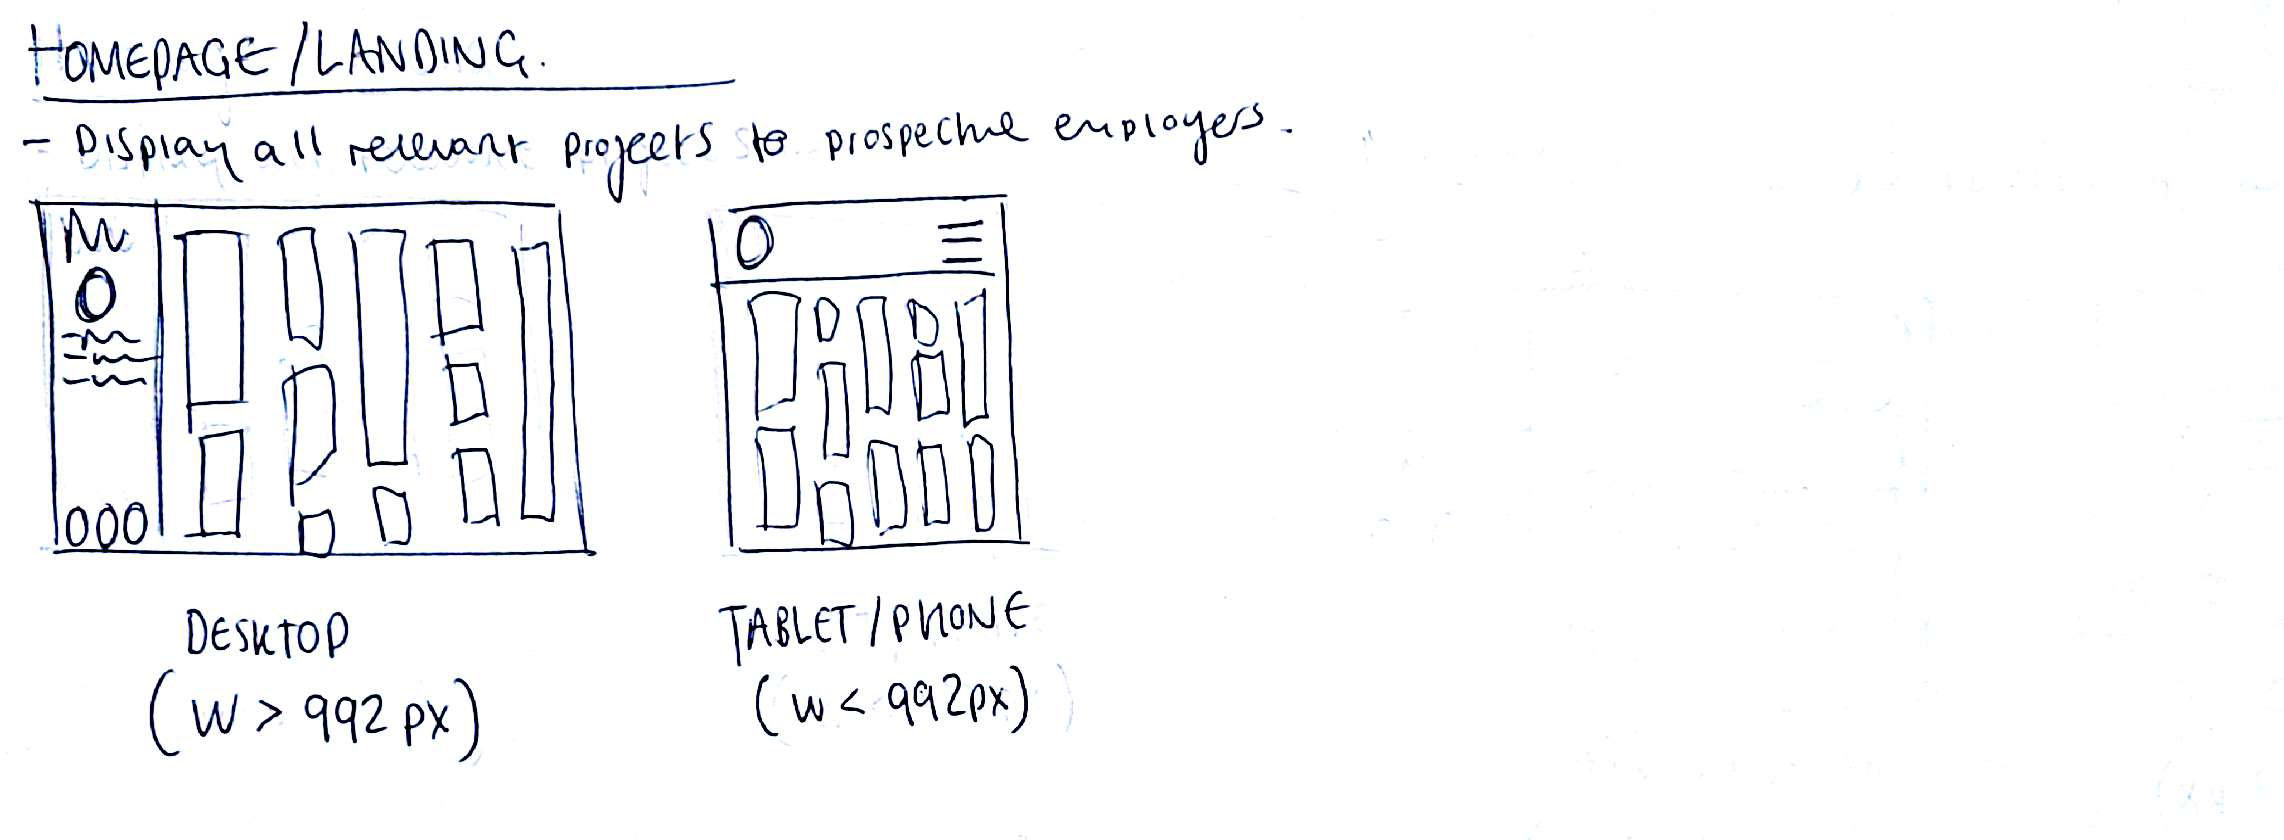 HOMEPAGE/LANDING.
- Display all relevant projects to prospective employers.
DESKTOP
(W > 992 px)
TABLET/PHONE
(W < 992px)